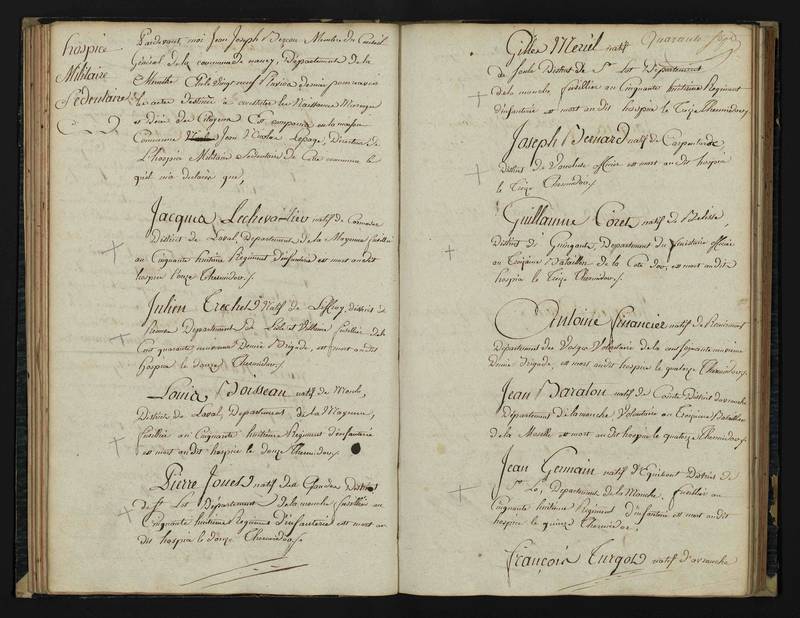 hospice
Militaire
Sédentaire
Pardevant moi Jean Joseph Membre du Conseil
Général de la commune de nancy, Département de la
Meurthe
les actes destinés à constater les Naissances Mariages
et décès des Citoyens Est comparu en la maison
Commune Jean Nicolas Lepage, Directeur de
L'hospice Militaire Sédentaire de cette commune le
quel m'a déclaré que,
Jacques Lechevallier natif de
District de Laval, Département de la Mayenne fusillier
au Cinquante huitieme Régiment d'infanterie est mort audit
hospice l'onze Thermidor.
Julien Trochet Natif de district de
Rennes Departement de L'isle et Villaine fusillier de la
Cent quarante neuvieme Demie Brigade, est mort audit
hospice le douze Thermidor.
Louis Boisseau natif de
District de Laval, Département de la Mayenne,
fusillier au Cinquante huitième Régiment d'infanterie
est mort audit hospice le douze Thermidor.
Pierre Jouet natif des District
de St Lot Département de la manche fusillier au
Cinquante huitieme Régiment d'infanterie est mort au
dit hospice le douze Thermidor.
Quarante Sept
Gilles Meriel natif
de District de St Lot Département
de la manche, fusillier au Cinquante huitieme Régiment
d'infanterie est mort audit hospice le Treize Thermidor.
Joseph Bernard natif de Carpentras,
district de Vaucluse officier est mort audit hospice
le Treize Thermidor.
Guillaume Coret natif de
district de Guingamp, Département du finistaire officier
au Troisième Bataillon de la Cote d'or, est mort audit
hospice le Treize Thermidor.
Antoine financier natif de Remiremont
Département des Vosges Volontaire de la
Demie Brigade, est mort audit hospice le quatorze Thermidor.
Jean Baralon natif de District d'avranche
Département de la manche, Volontaire au Troisieme Bataillon
de la Moselle est mort audit hospice le quatorze Thermidor.
Jean Germain natif d' District de
St Lo, Departement de la Manche, fusillier au
Cinquante huitieme Régiment d'infanterie est mort audit
hospice le quinze Thermidor,
François Turgot natif d'avranche